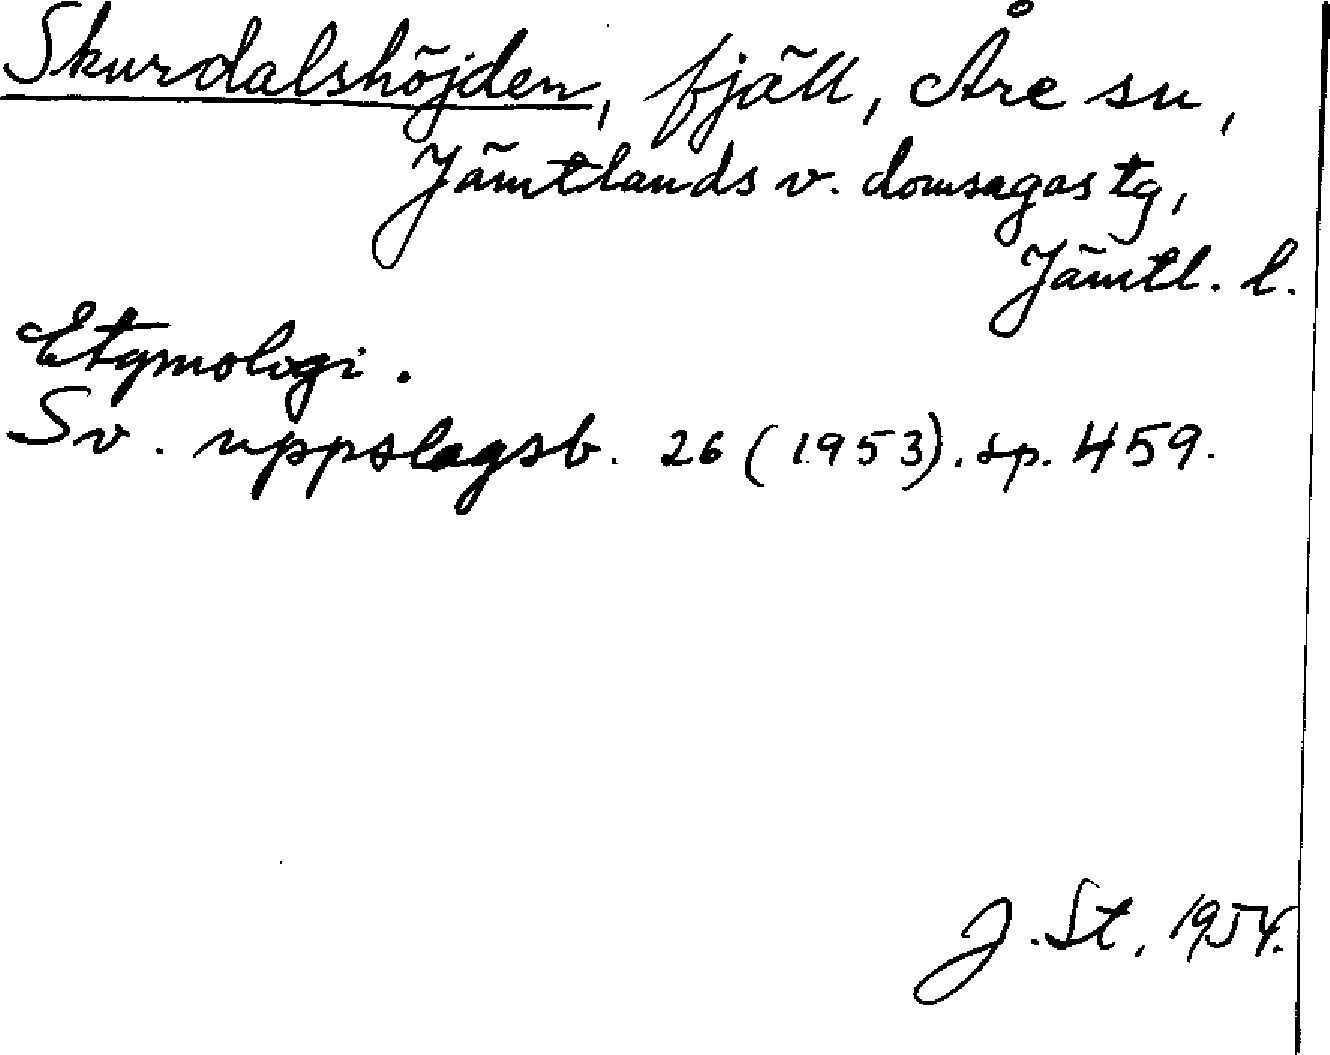 Skurdalshöjden, fjäll, Åre su,
Jämtlands v. domsagas tg,
Jämtl. l.
Etymologi.
Sv. uppslagsb. 26 (1953). sp. 459.
J. St. 1954.